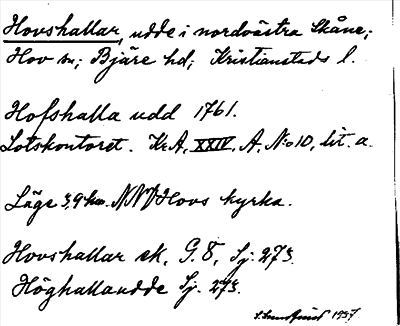 Hovshallar, udde i nordvästra Skåne;
Hov sn; Bjäre hd; Kristianstads l.
Hofshalla udd 1761.
Lotskontoret. Kr.A. XXIV, A. No 10, lit. a.
Läge 3,9 km. NNV Hovs kyrka.
Hovshallar ek. G. 8, Sj. 273.
Höghalludde Sj. 273.
1937